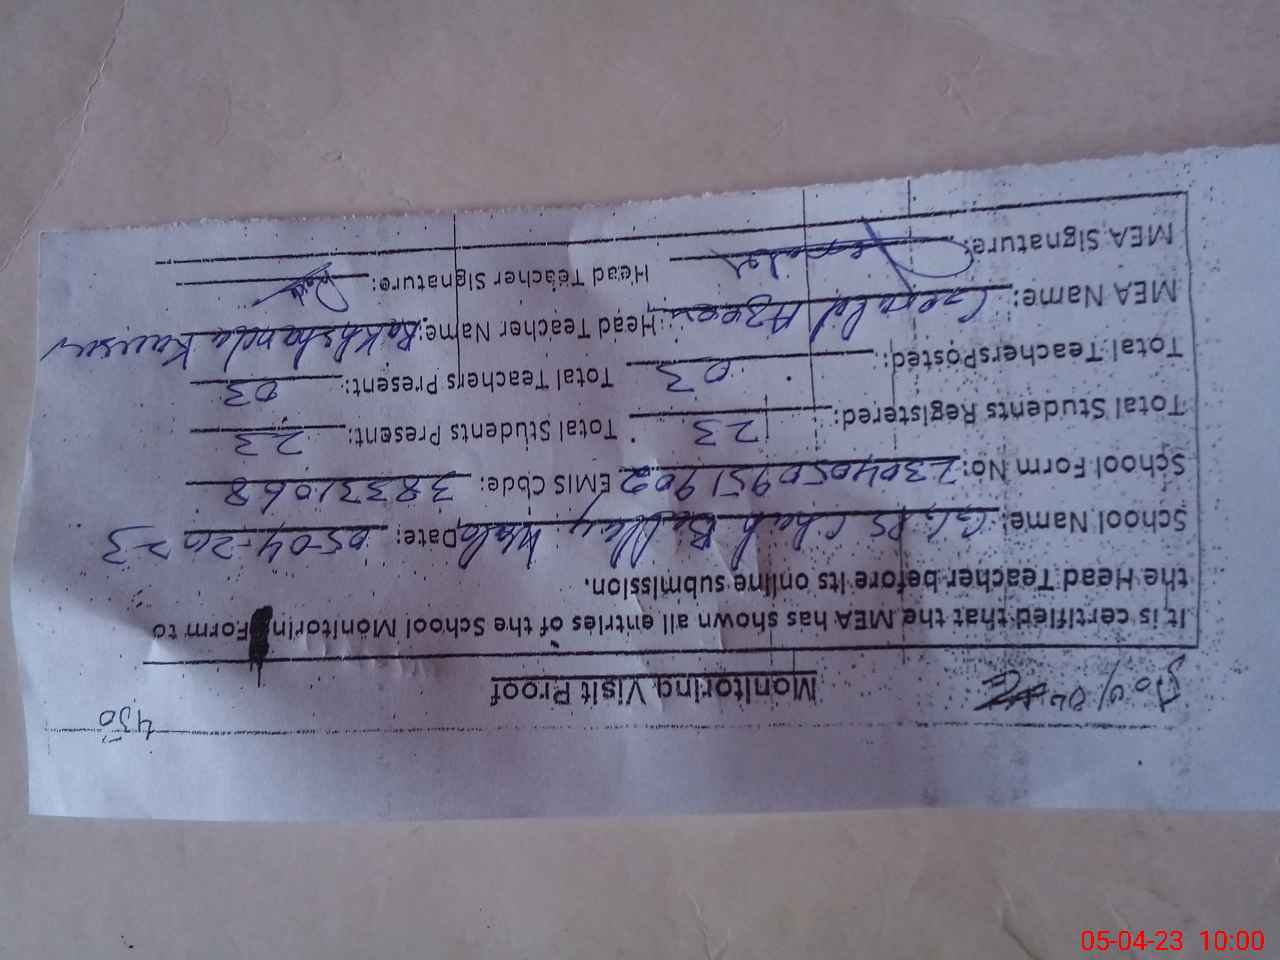 450
Monitoring Visit Proof
It is certified that the MEA has shown all entries of the School Monitorin Form to
the Head Teacher before its online submission.
School Name: GGPS Chah Balley Wala Date: 05-04-2023
School Form No: 2304050951902 EMIS Code: 38331068
Total Students Registered: 23 Total Students Present: 23
Total TeachersPosted: 03 Total Teachers Present: 03
MEA Name: Gerald Azeem Head Teacher Name: Rakhshanda Kausar
MEA Signature: Head Teacher Signature:
05-04-23 10:00